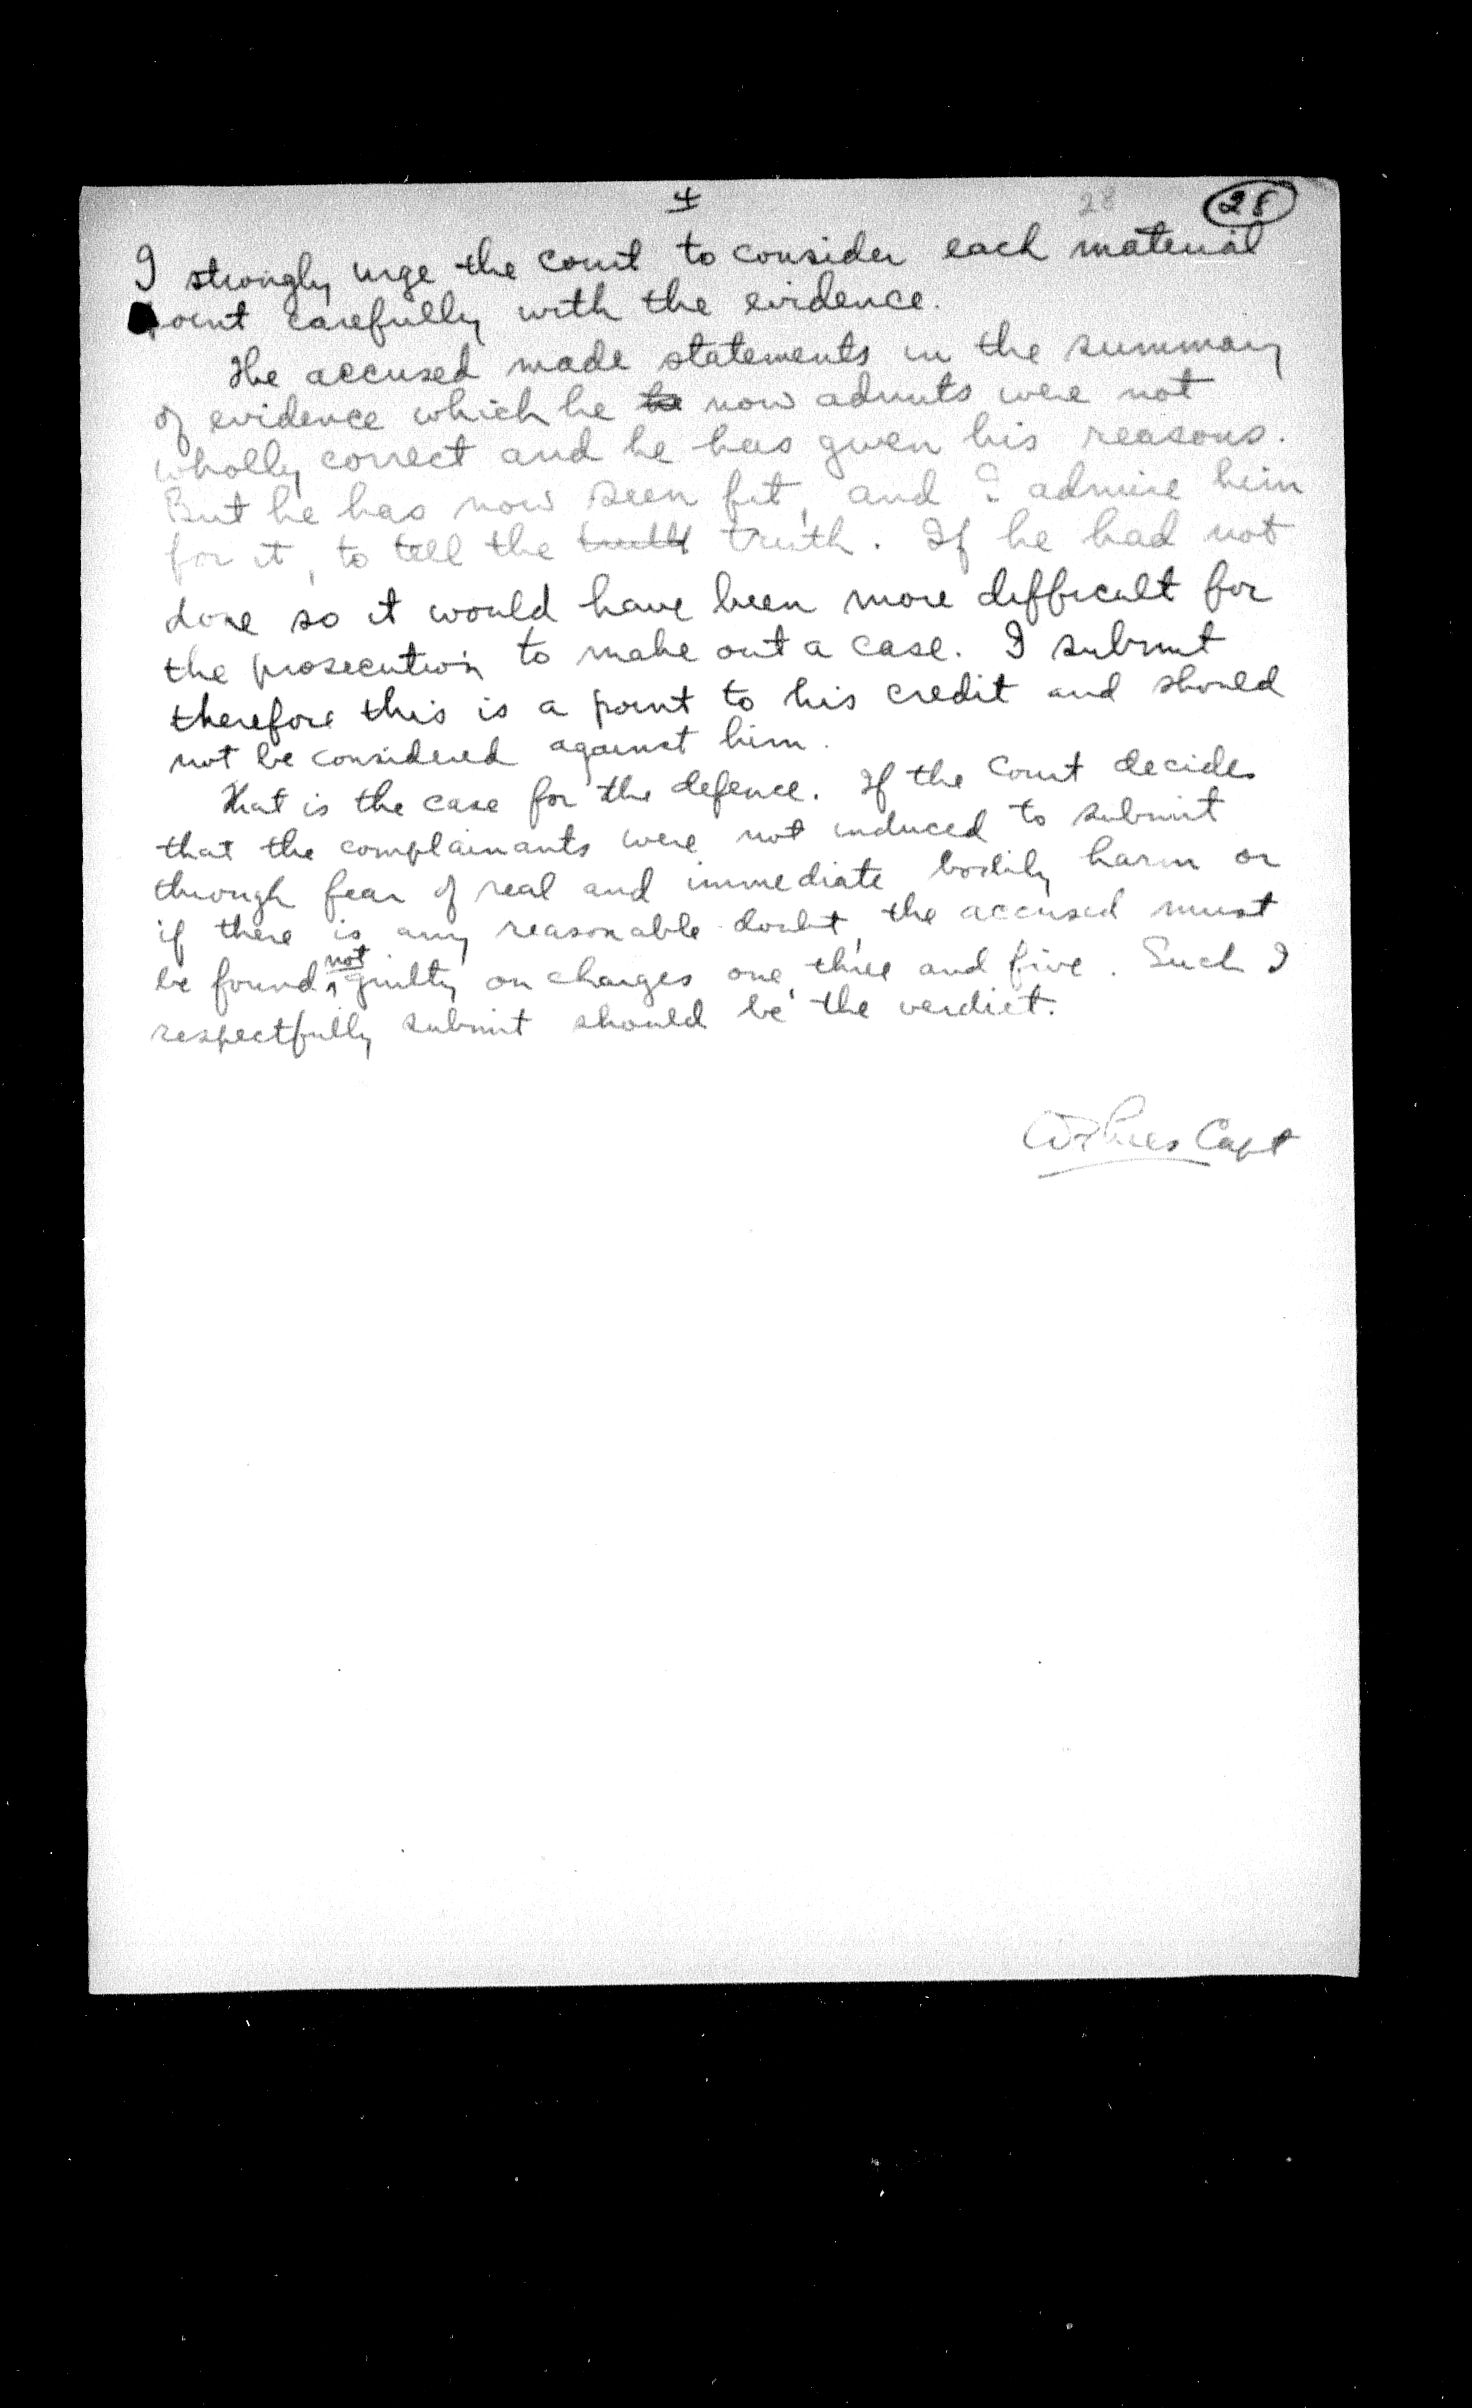 4
28
28
I strongly urge the court to consider each material
point carefully with the evidence.
The accused made statements in the summary
of evidence which he he now admits were not
wholly correct and he has given his reasons.
But he has now seen fit, and I admire him
for it, to tell the truth truth. If he had not
done so it would have been more difficult for
the prosecution to make out a case. I submit
therefore this is a point to his credit and should
not be considered against him.
That is the case for the defence. If the Court decides
that the complainants were not induced to submit
through fear of real and immediate bodily harm or
if there is any reasonable doubt, the accused must
be found not guilty on charges one, three and five. Such I
respectfully submit should be the verdict.
Capt